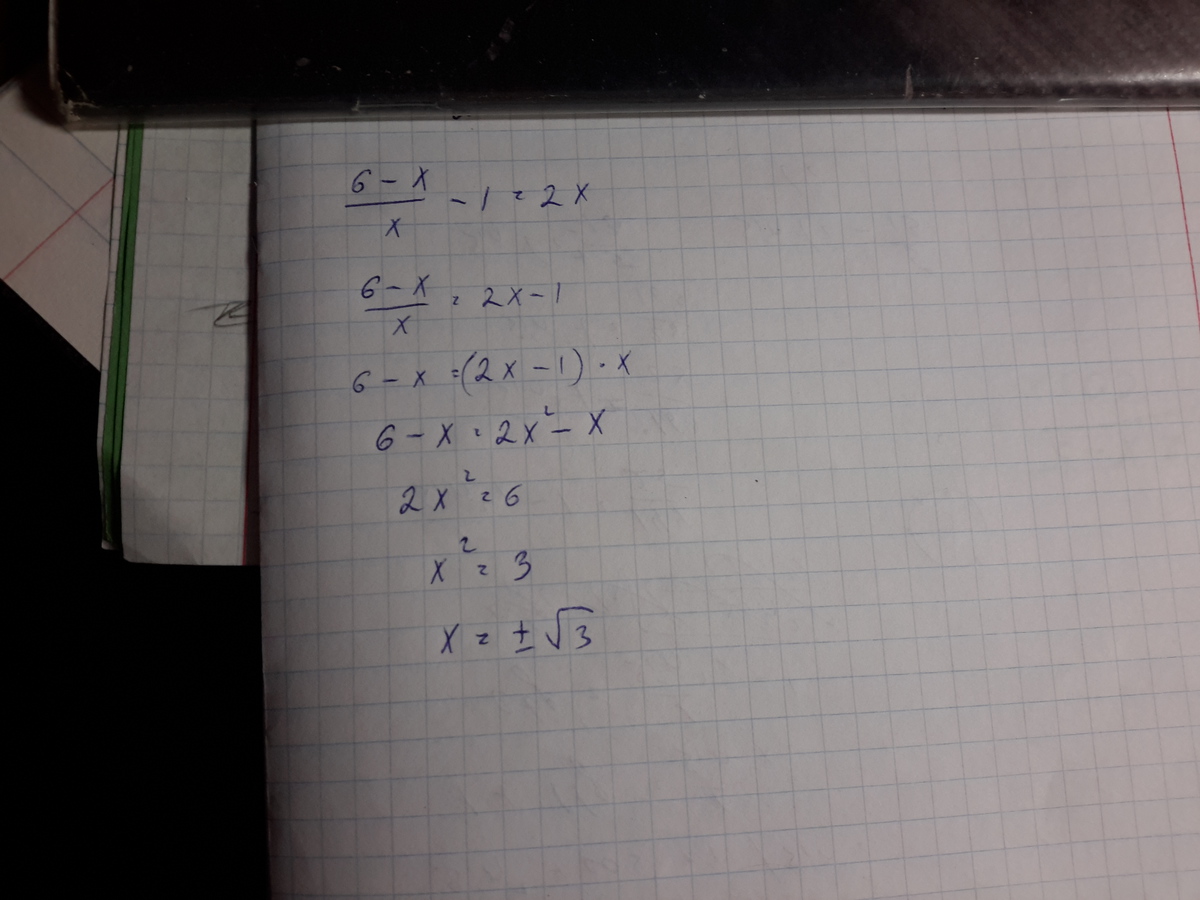 (6 - x)/x - 1 = 2x
(6 - x)/x = 2x - 1
6 - x = (2x - 1) · x
6 - x = 2x² - x
2x² = 6
x² = 3
x = ± √3